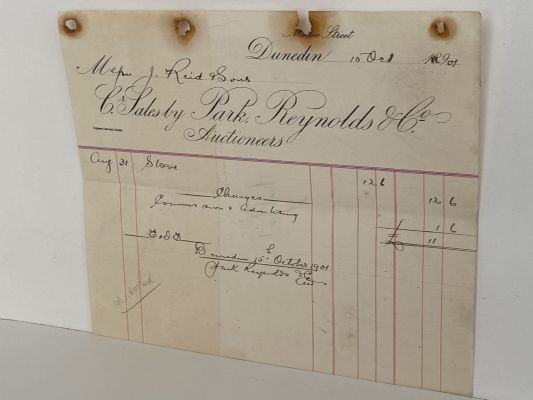 Manse Street
Dunedin 15 Oct 1901
Messrs J. Reid & Sons
Cr. Sales by Park, Reynolds & Co.
Auctioneers
Aug 31 Stove 12 6 12 6
Charges
Commission & Advertising 1 6
E & O E £ 11
Dunedin 15th October 1901
Park Reynolds & Co